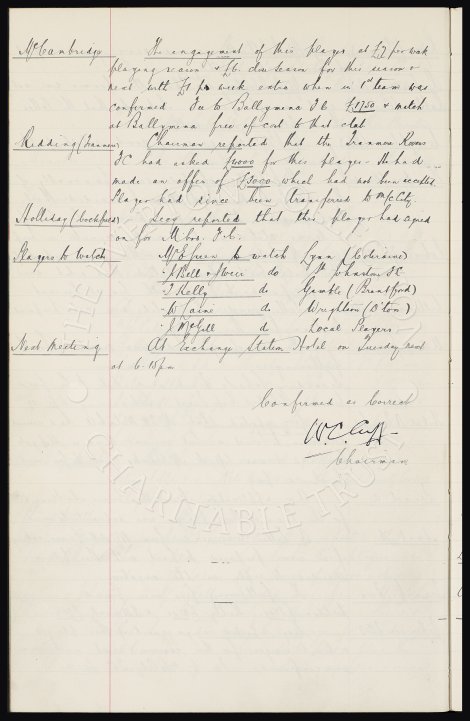 McCambridge The engagement of this player at £7 per week
playing season & £6 close season for this season &
next with £1 pr week extra when in 1st team was
confirmed. Fee to Ballymena F.C £1750 & match
at Ballymena free of cost to that club
Redding (Tranmere) Chairman reported that the Tranmere Rovers
FC had asked £4000 for this player. He had
made an offer of £3000 which had not been accepted.
Player had since been transferred to M/c City.
Holliday (Cockfield) Secy reported that this player had signed
on for Mbro. F.C.
Players to Watch McE Green to watch Lynn (Coleraine)
J Bell & Weir do St Johnston FC
J Kelly do Gamble (Brantford)
W Caine do Wrighton (D'ton)
J McGill do Local Players
Next Meeting At Exchange Station Hotel on Tuesday next
at 6-15 pm
Confirmed as Correct
W.C. Cuff
Chairman
CHARITABLE TRUST